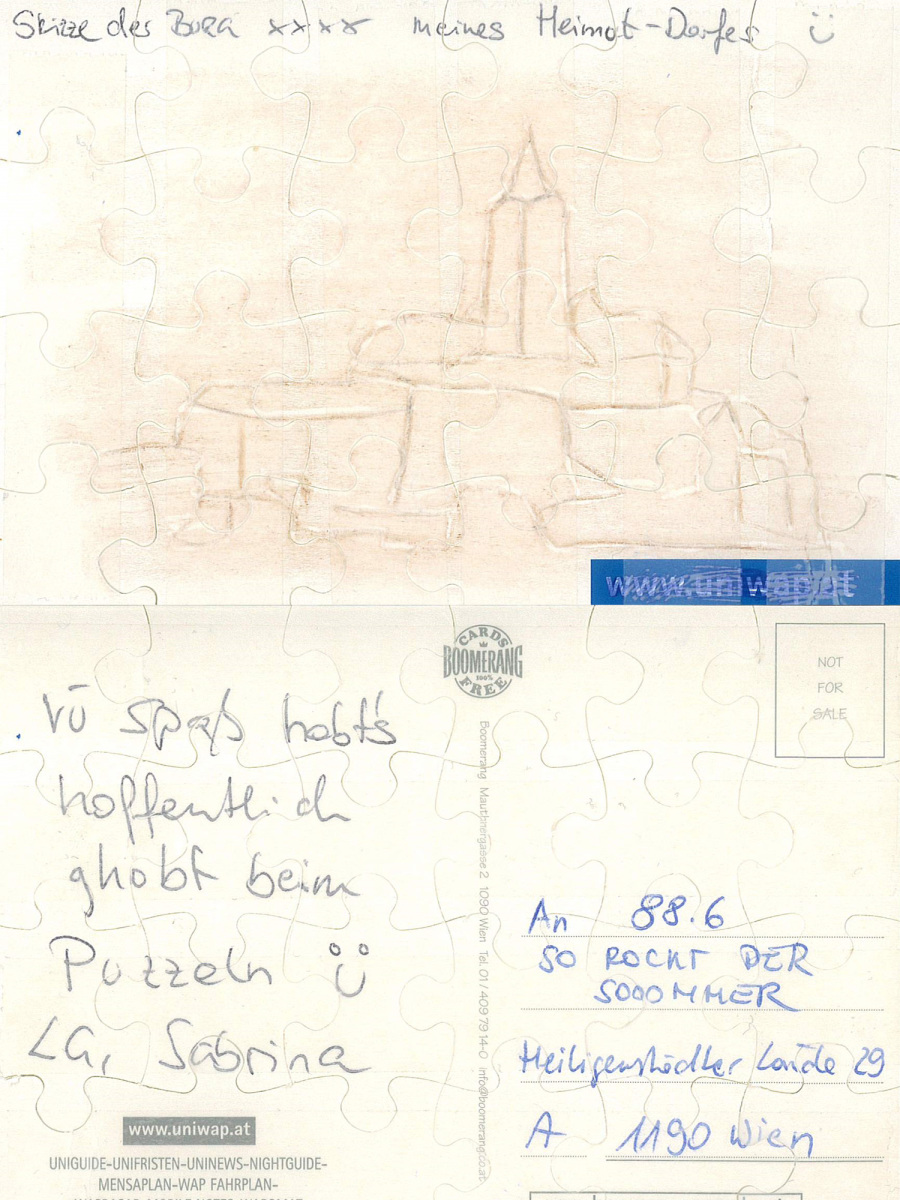 Skizze der Burg xxxx meines Heimat-Dorfes
www.uniwap.at
CARDS
BOOMERANG
100%
FREE
NOT
FOR
SALE
Vü Spaß habt's
hoffentlich
ghobt beim
Puzzeln
LG, Sabrina
Boomerang Mautnergasse 2 1090 Wien Tel. 01 / 409 79 14-0 info@boomerang.co.at
An 88.6
SO ROCKT DER
SOOOMMER
Heiligenstädter Lände 29
A 1190 Wien
www.uniwap.at
UNIGUIDE-UNIFRISTEN-UNINEWS-NIGHTGUIDE-
MENSAPLAN-WAP FAHRPLAN-